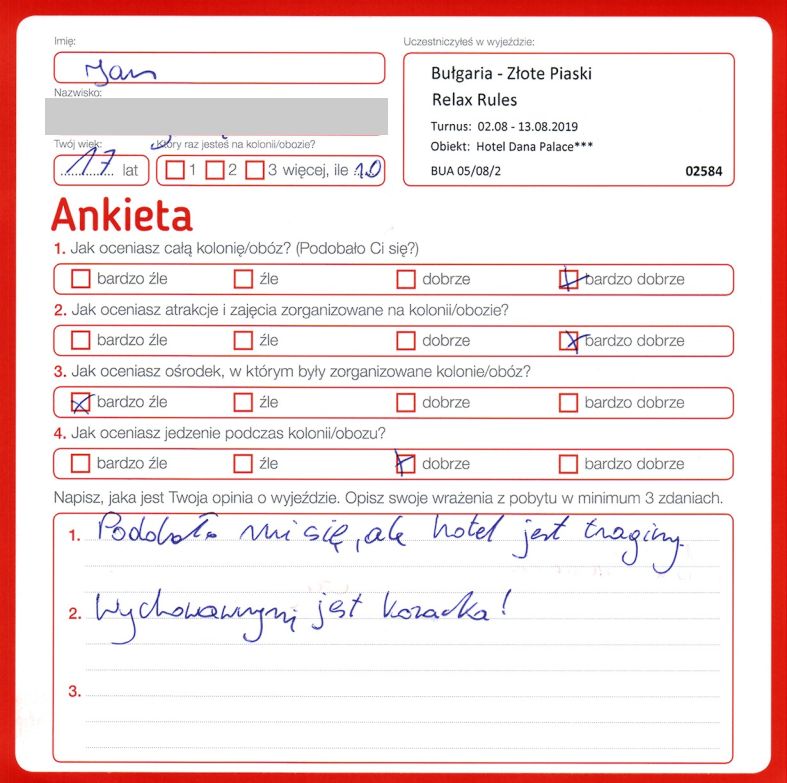 Imię:
Jan
Nazwisko:
Twój wiek:
17 lat
Który raz jesteś na kolonii/obozie?
1 2 3 więcej, ile 10
Uczestniczyłeś w wyjeździe:
Bułgaria - Złote Piaski
Relax Rules
Turnus: 02.08 - 13.08.2019
Obiekt: Hotel Dana Palace***
BUA 05/08/2 02584
Ankieta
1. Jak oceniasz całą kolonię/obóz? (Podobało Ci się?)
bardzo źle źle dobrze bardzo dobrze
2. Jak oceniasz atrakcje i zajęcia zorganizowane na kolonii/obozie?
bardzo źle źle dobrze bardzo dobrze
3. Jak oceniasz ośrodek, w którym były zorganizowane kolonie/obóz?
bardzo źle źle dobrze bardzo dobrze
4. Jak oceniasz jedzenie podczas kolonii/obozu?
bardzo źle źle dobrze bardzo dobrze
Napisz, jaka jest Twoja opinia o wyjeździe. Opisz swoje wrażenia z pobytu w minimum 3 zdaniach.
1. Podobało mi się, ale hotel jest tragiczny.
2. Wychowawczyni jest kozacka!
3.